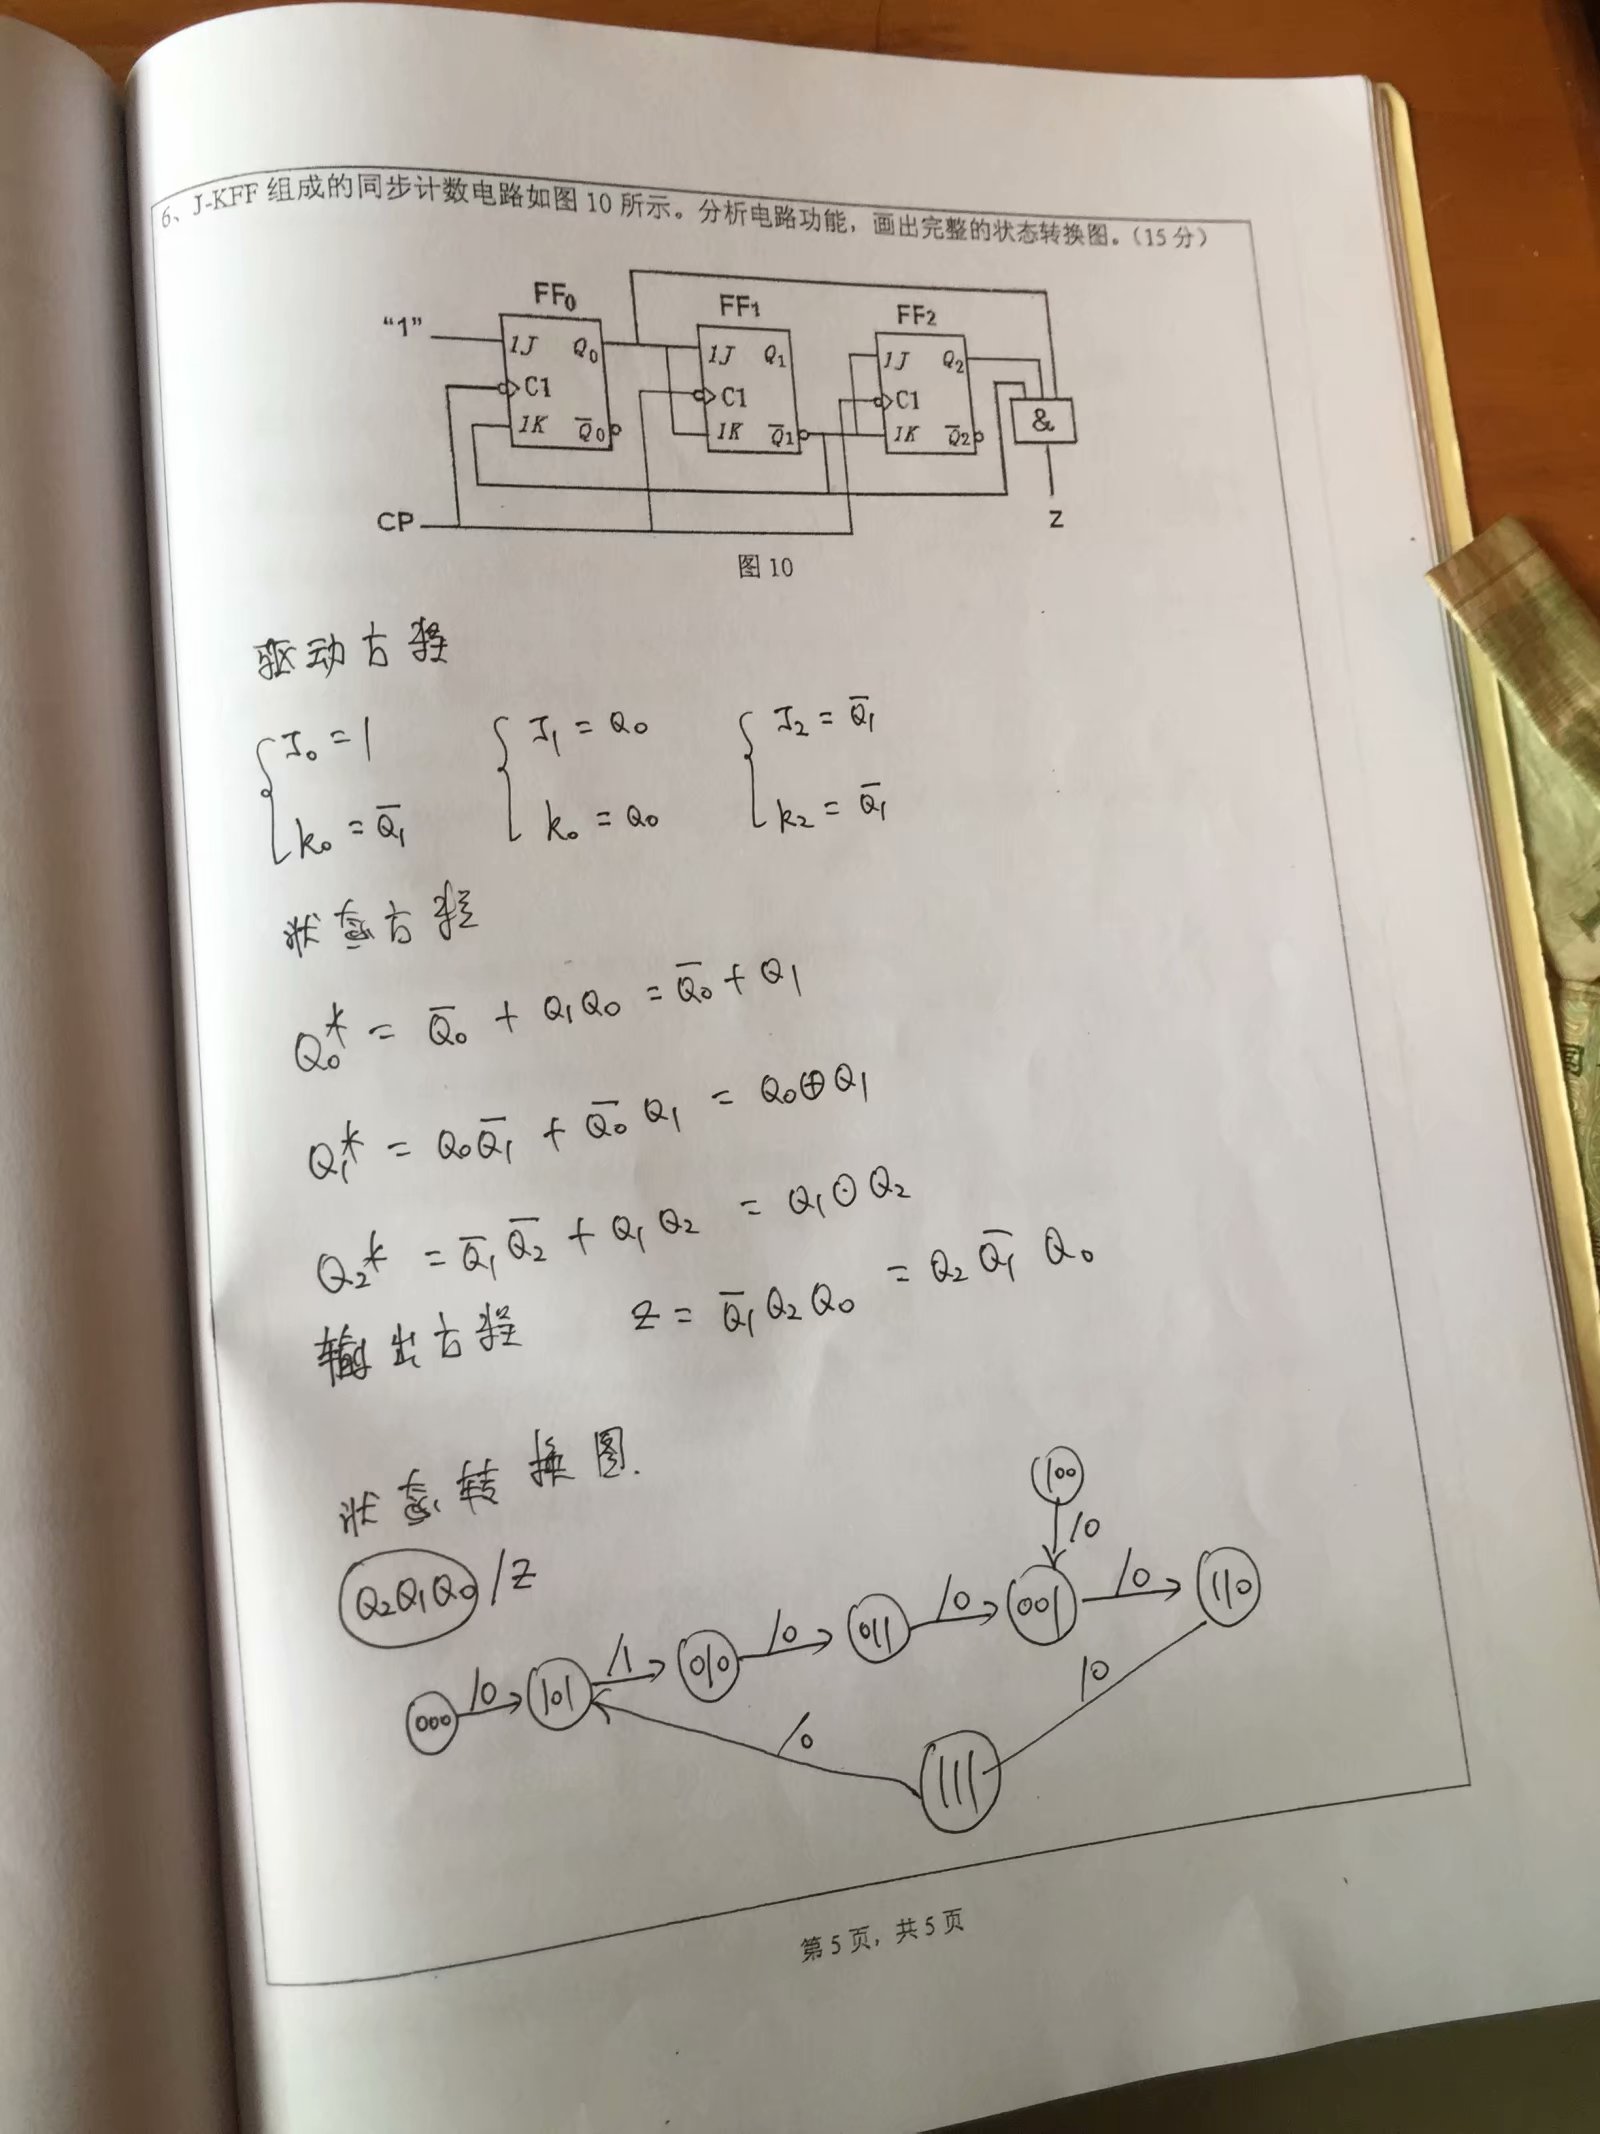 6、J-KFF 组成的同步计数电路如图 10 所示。分析电路功能，画出完整的状态转换图。（15 分）
FF₀ FF₁ FF₂
“1” 1J Q₀ 1J Q₁ 1J Q₂
C1 C1 C1 &
1K Q̅₀ 1K Q̅₁ 1K Q̅₂
CP Z
图 10
驱动方程
J₀ = 1 J₁ = Q₀ J₂ = Q̅₁
k₀ = Q̅₁ k₀ = Q₀ k₂ = Q̅₁
状态方程
Q₀* = Q̅₀ + Q₁Q₀ = Q̅₀ + Q₁
Q₁* = Q₀Q̅₁ + Q̅₀Q₁ = Q₀⊕Q₁
Q₂* = Q̅₁Q̅₂ + Q₁Q₂ = Q₁⊙Q₂
输出方程 Z = Q̅₁Q₂Q₀ = Q₂Q̅₁Q₀
状态转换图.
Q₂Q₁Q₀ /Z
100
/0
000 /0 101 /1 010 /0 011 /0 001 /0 110
/0 /0
111
第 5 页，共 5 页